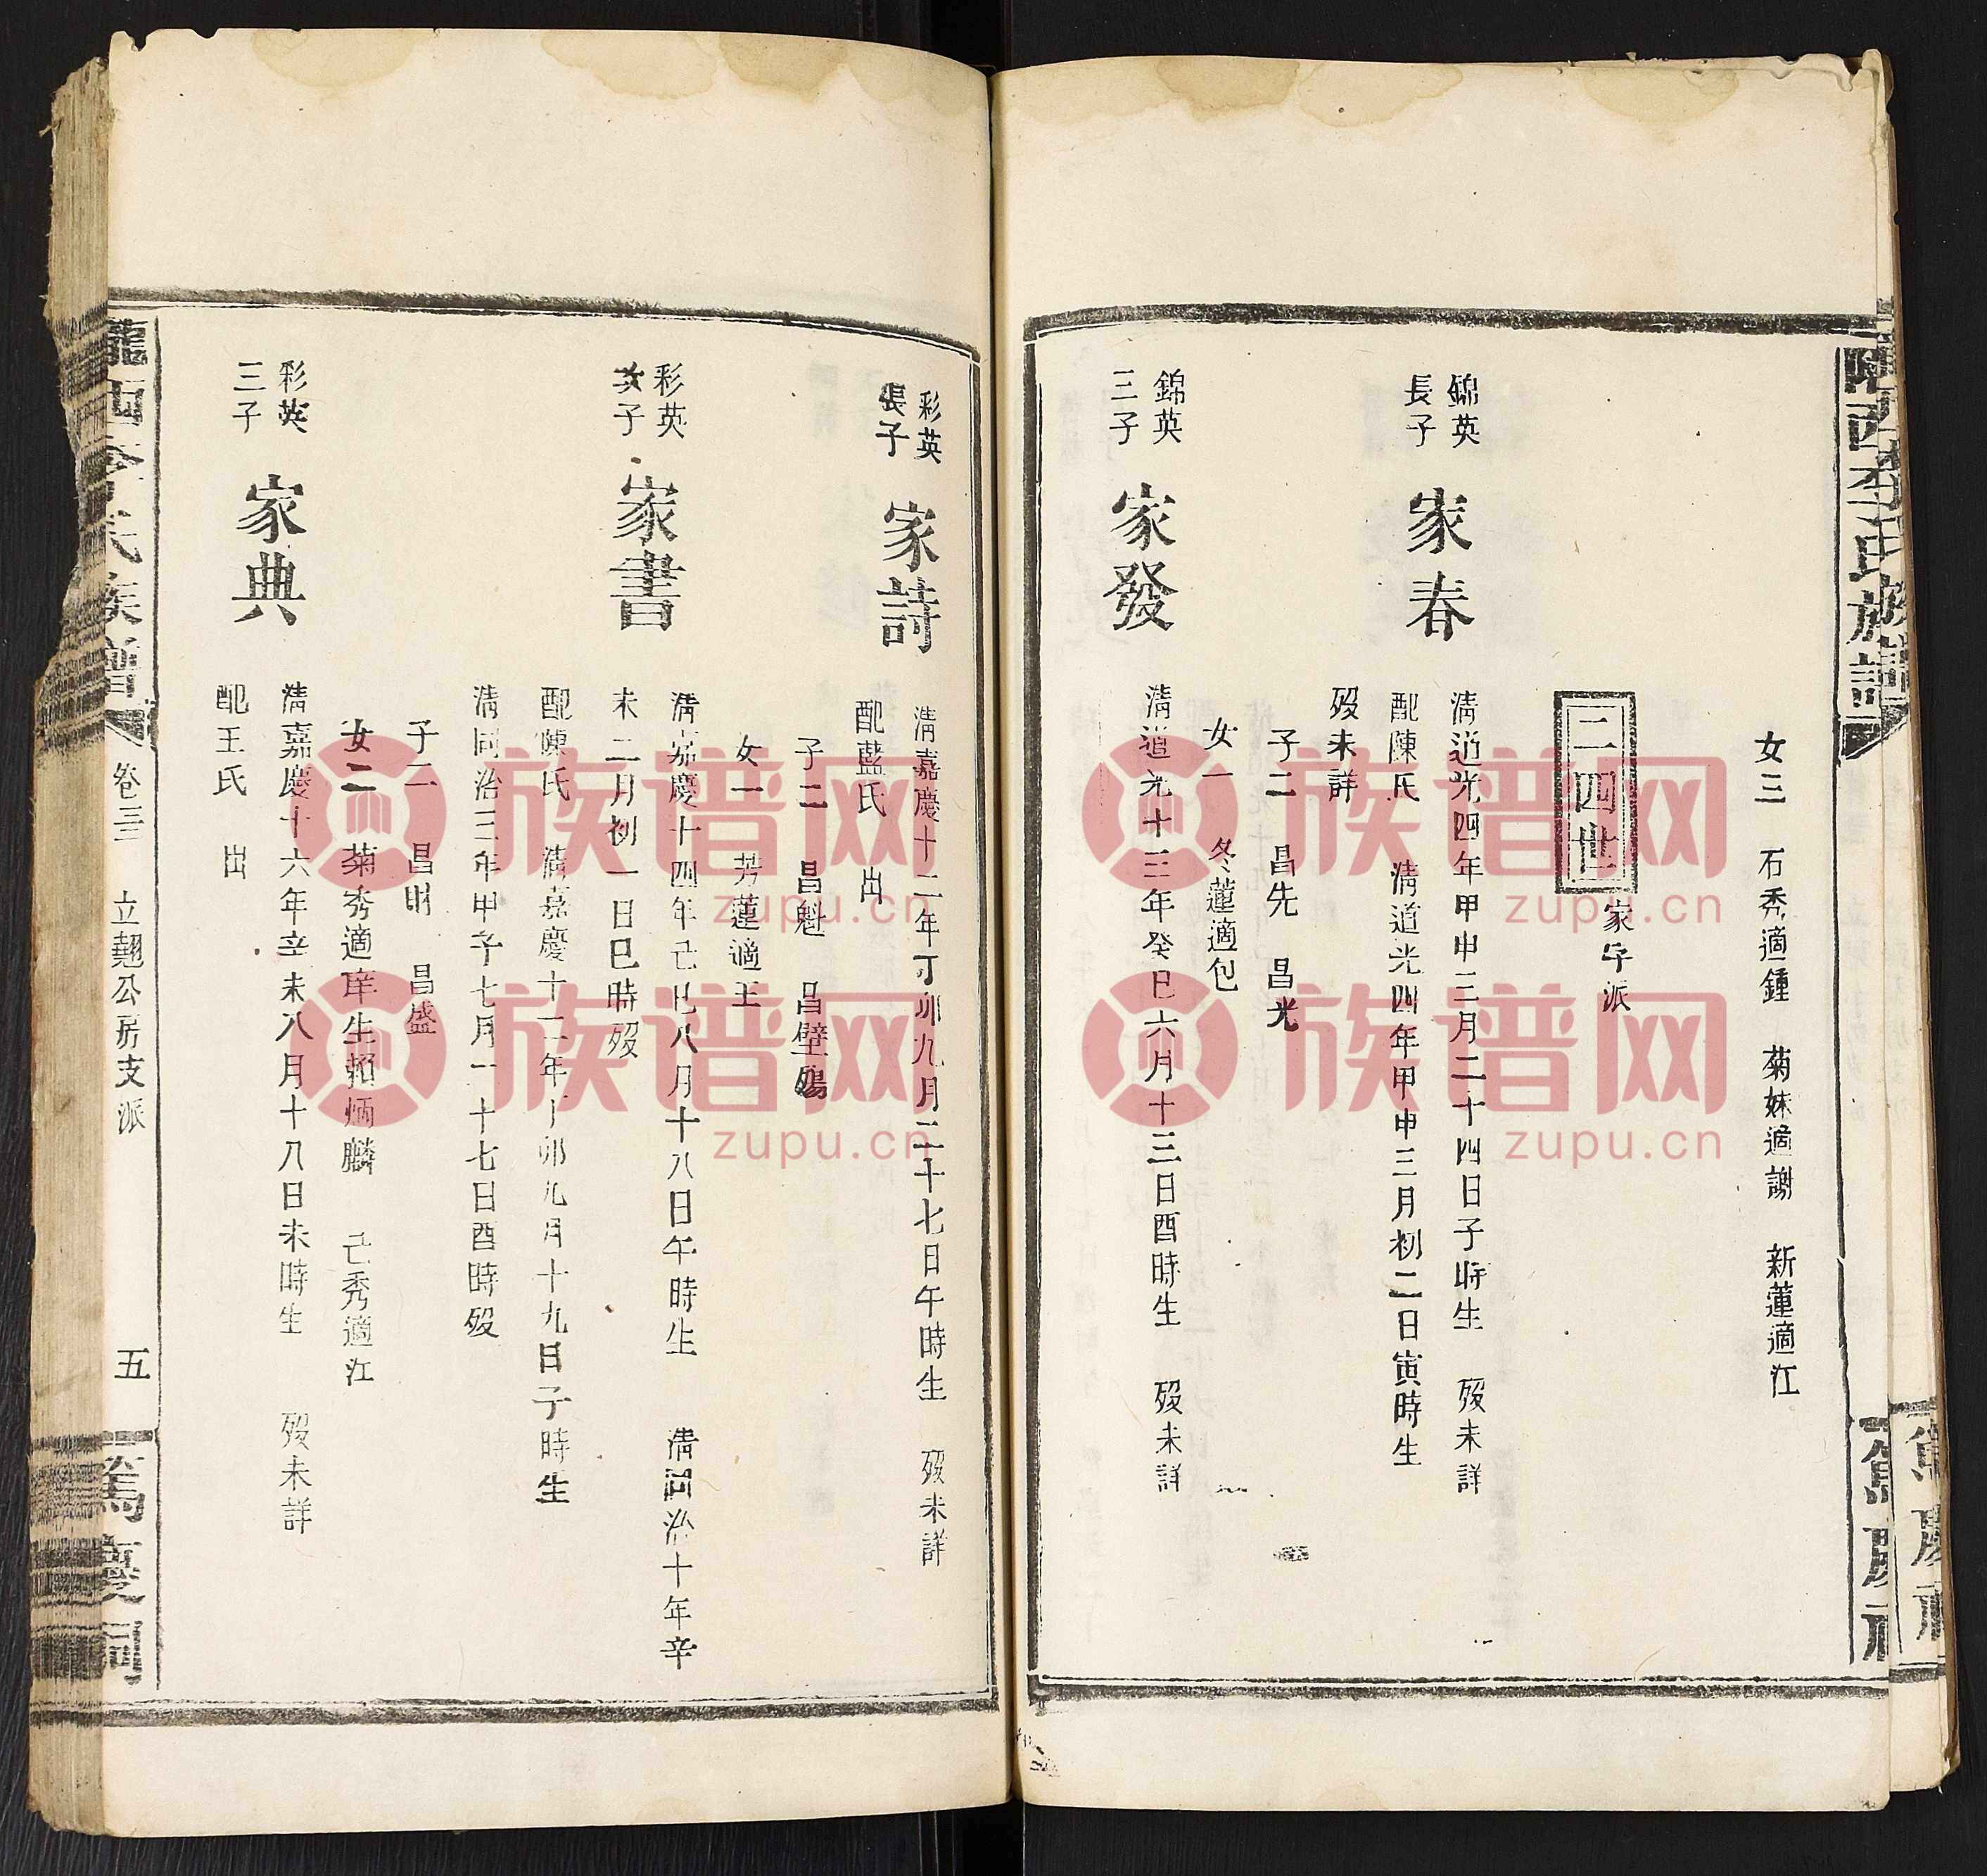 隴西李氏族譜
篤慶祠
女三 石秀適鍾 菊妹適謝 新蓮適江
二四世 家字派
錦英
長子
家春
淸道光四年甲申三月二十四日子時生 歿未詳
配陳氏 淸道光四年甲申三月初二日寅時生
歿未詳
子二 昌先 昌光
女一 冬蓮適包
錦英
三子
家發
淸道光十三年癸巳六月十三日酉時生 歿未詳
彩英
長子
家詩
淸嘉慶十二年丁卯九月二十七日午時生 歿未詳
配藍氏 出
子二 昌魁 昌壁殤
女一 芳蓮適王
彩英
次子
家書
淸嘉慶十四年己巳八月十八日午時生 淸同治十年辛
未二月初一日巳時歿
配陳氏 淸嘉慶十二年丁卯九月十九日子時生
淸同治三年甲子七月二十七日酉時歿
子二 昌明 昌盛
女二 菊秀適庠生賴炳麟 己秀適江
彩英
三子
家典
淸嘉慶十六年辛未八月十八日未時生 歿未詳
配王氏 出
隴西李氏族譜 卷三 立翹公房支派 五 篤慶祠
族谱网
zupu.cn
族谱网
zupu.cn
族谱网
zupu.cn
族谱网
zupu.cn